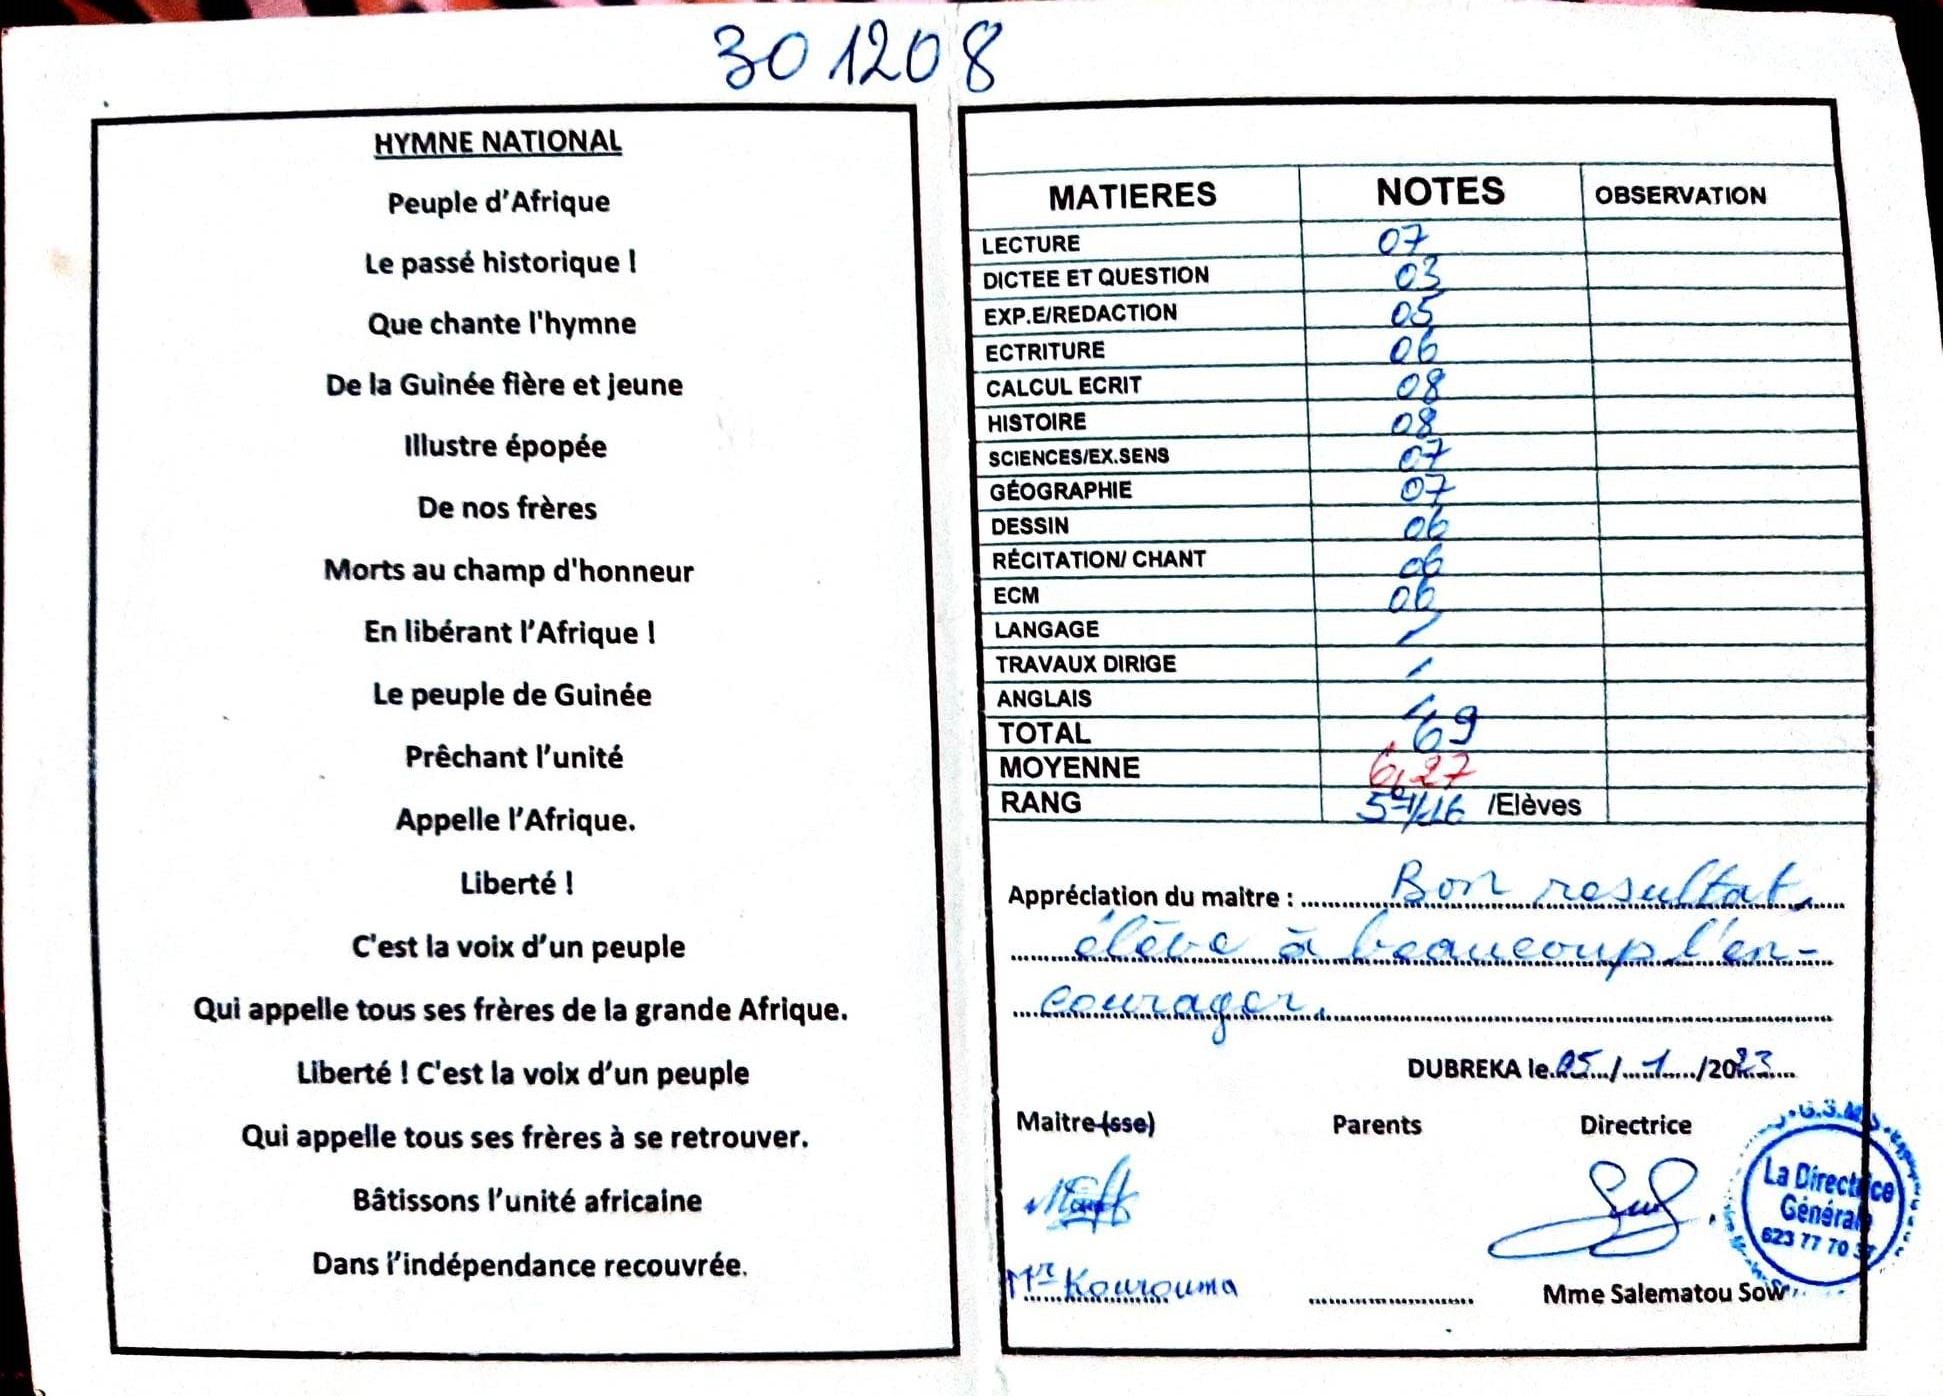 301208
HYMNE NATIONAL
Peuple d'Afrique
Le passé historique !
Que chante l'hymne
De la Guinée fière et jeune
Illustre épopée
De nos frères
Morts au champ d'honneur
En libérant l'Afrique !
Le peuple de Guinée
Prêchant l'unité
Appelle l'Afrique.
Liberté !
C'est la voix d'un peuple
Qui appelle tous ses frères de la grande Afrique.
Liberté ! C'est la voix d'un peuple
Qui appelle tous ses frères à se retrouver.
Bâtissons l'unité africaine
Dans l'indépendance recouvrée.
MATIERES NOTES OBSERVATION
LECTURE 07
DICTEE ET QUESTION 03
EXP.E/REDACTION 05
ECTRITURE 06
CALCUL ECRIT 08
HISTOIRE 08
SCIENCES/EX.SENS 07
GÉOGRAPHIE 07
DESSIN 06
RÉCITATION/ CHANT 06
ECM 06
LANGAGE
TRAVAUX DIRIGE
ANGLAIS
TOTAL 69
MOYENNE 6,27
RANG 5e/16 /Elèves
Appréciation du maitre : Bon resultat,
élève à beaucoup l'en-
courager.
DUBREKA le 05/1/2023
Maitre(sse) Parents Directrice
La Directrice
Générale
623 77 70
Mr Kourouma
Mme Salematou Sow